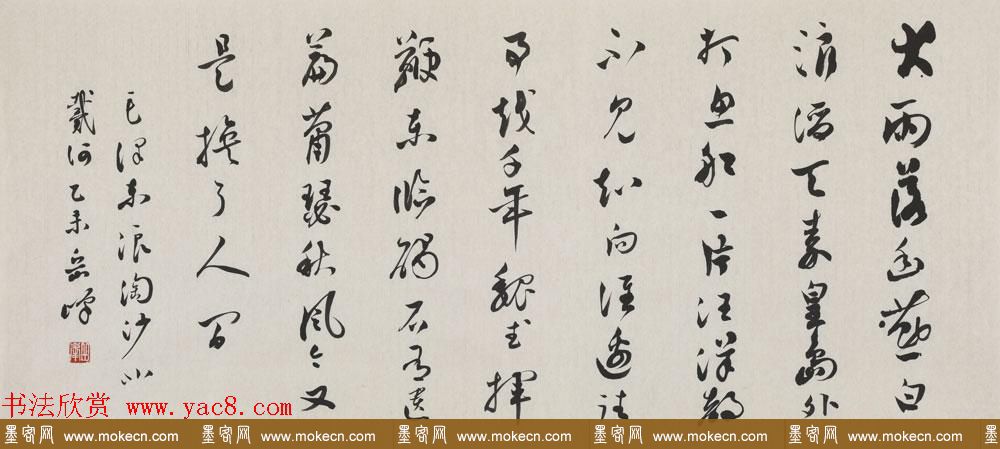 大雨落幽燕白
浪滔天秦皇島外
打魚船一片汪洋都
不見知向誰邊往
事越千年魏武揮
鞭東臨碣石有遺
篇蕭瑟秋風今又
是換了人間
毛澤東浪淘沙北
戴河乙未岳峰
书法欣赏 www.yac8.com
墨客网 www.mokecn.com 墨客网 www.mokecn.com 墨客网 www.mokecn.com 墨客网 www.mokecn.com 墨客网 www.mokecn.com